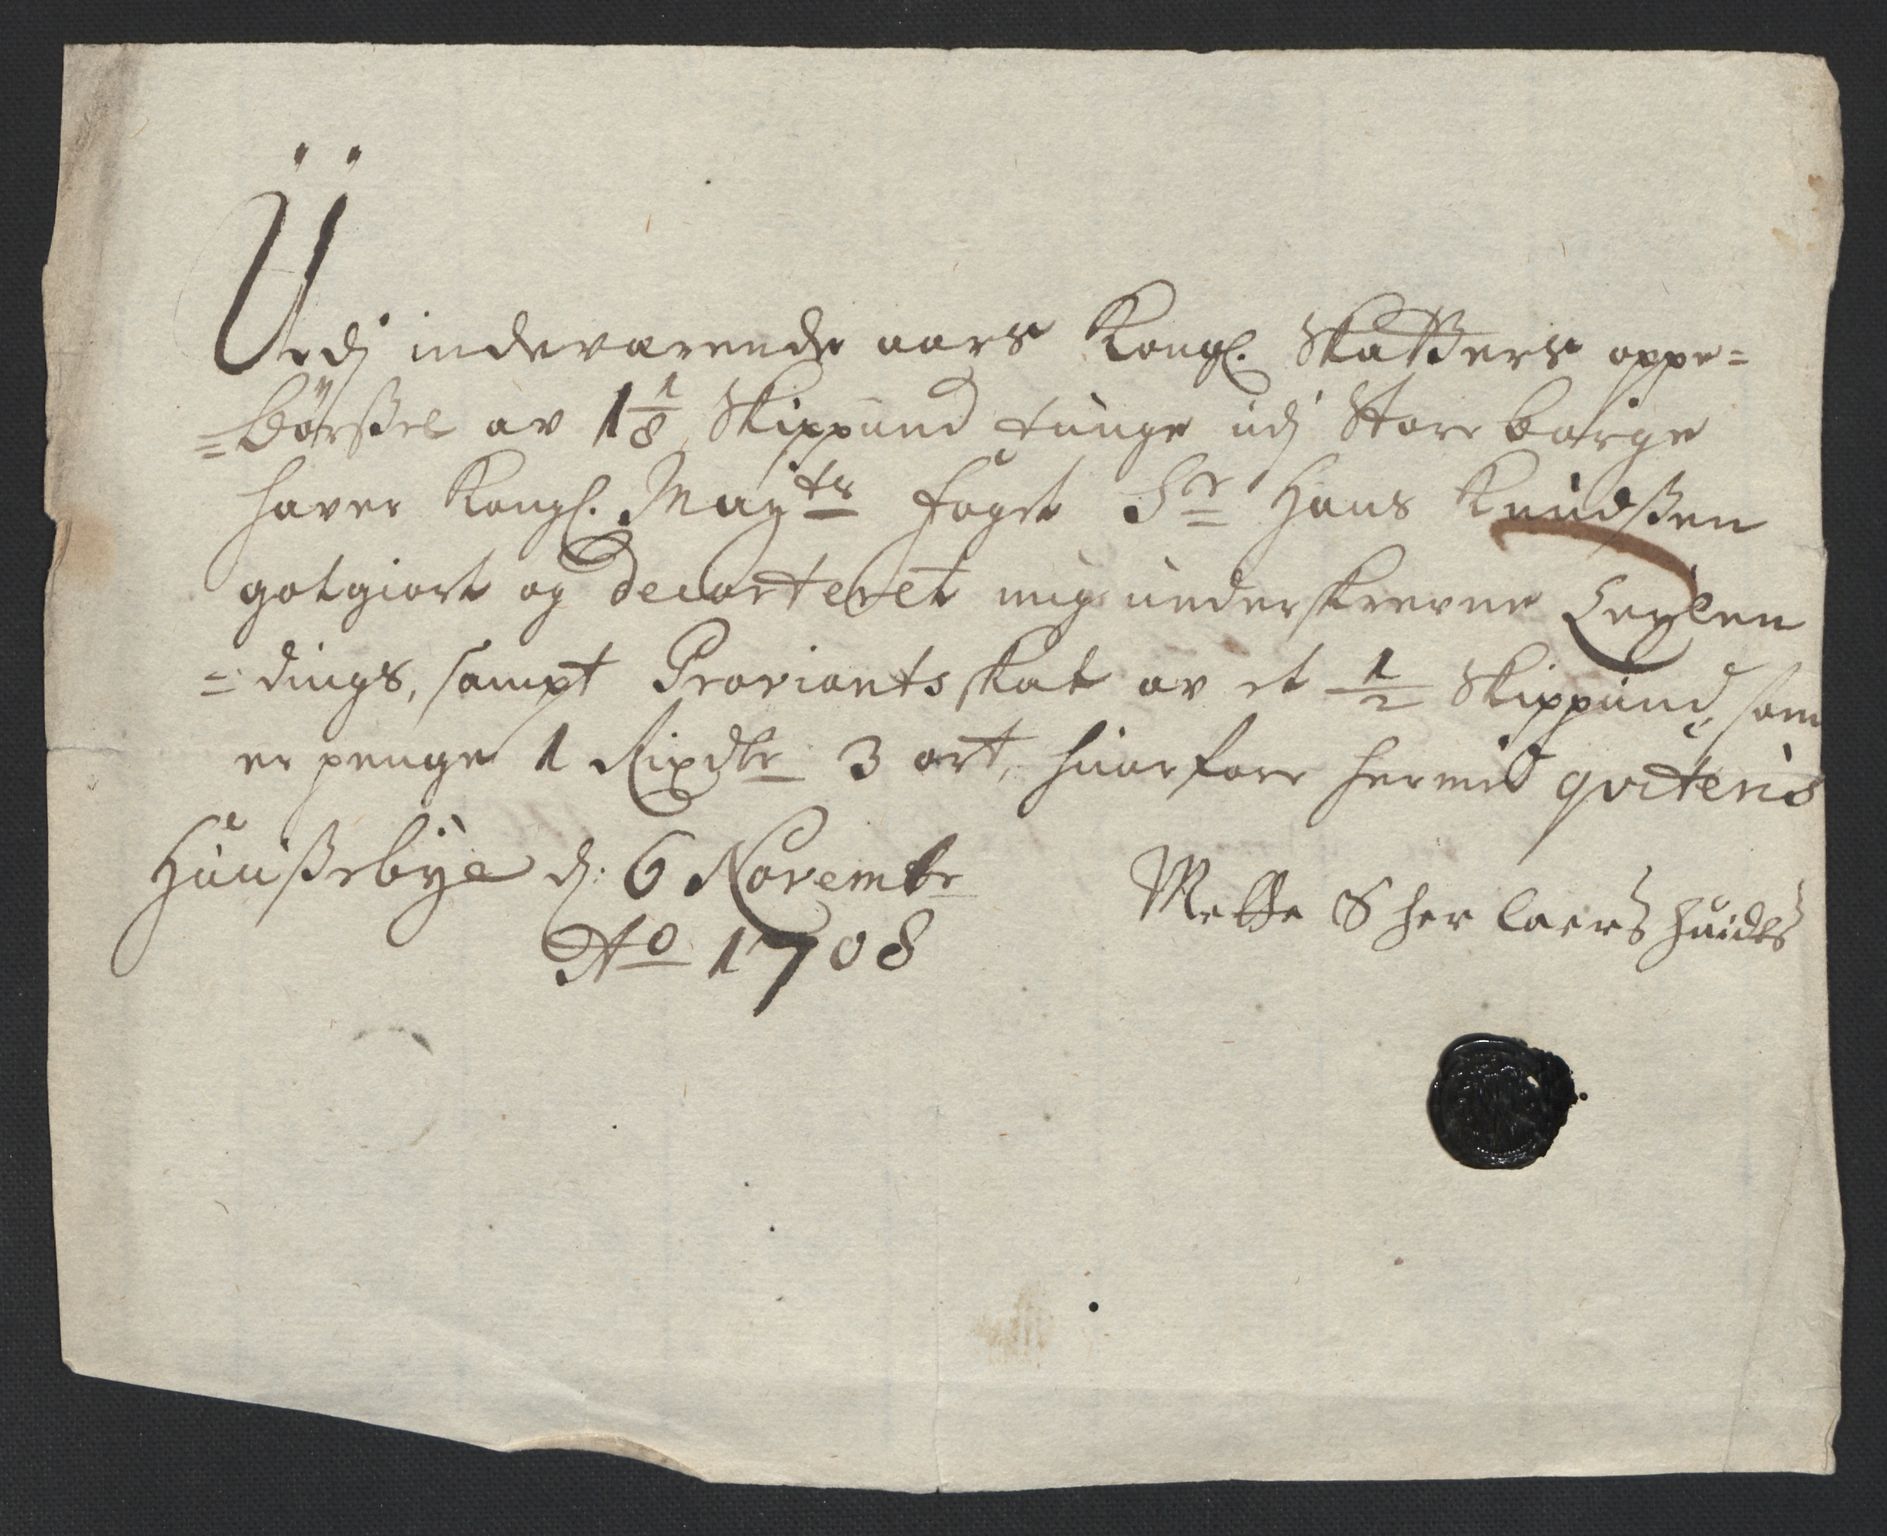 Udj indeværende aars Kongl. Skatters oppe=
=börßel av 1 1/8 Skippund tunge udj Store
haver Kongl. May^ts foget S^r Hans Knudßen
gotgiort og decorteret mig underskrevne Leylen
=dings, sampt Proviantskat av et 1/2 Skippund, som
er penge 1 Rixdlr 3 ort, huorfore hermed qviteris
Huußebye d: 6 Novembr
A^o 1708
Mette